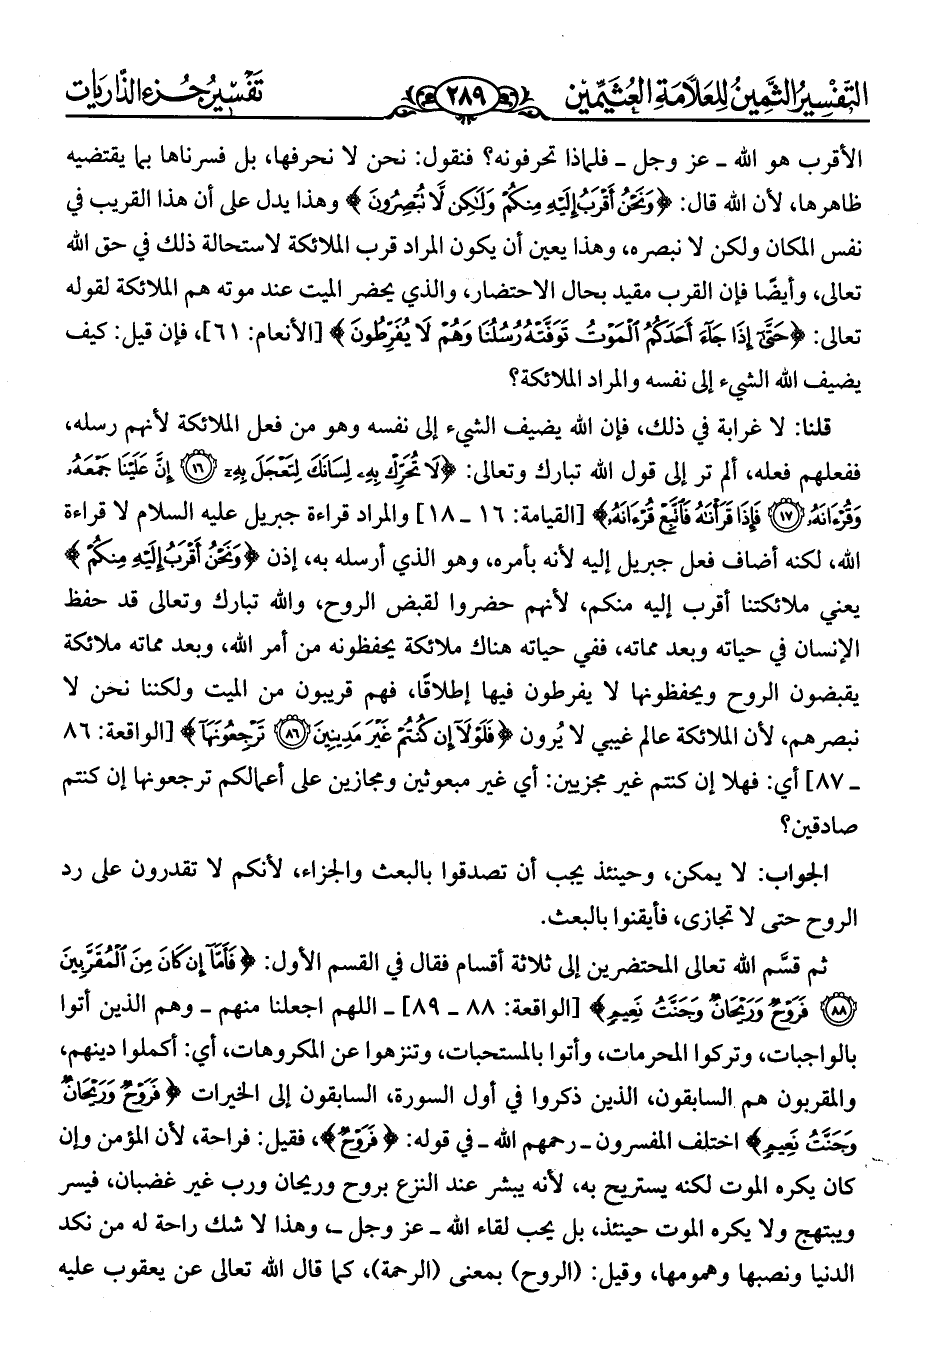 التفسير الثمين للعلامة العثيمين ٢٨٩ تفسير جزء الذاريات
الأقرب هو الله ـ عز وجل ـ فلماذا تحرفونه؟ فنقول: نحن لا نحرفها، بل فسرناها بما يقتضيه
ظاهرها، لأن الله قال: ﴿وَنَحْنُ أَقْرَبُ إِلَيْهِ مِنكُمْ وَلَٰكِن لَّا تُبْصِرُونَ﴾ وهذا يدل على أن هذا القريب في
نفس المكان ولكن لا نبصره، وهذا يعين أن يكون المراد قرب الملائكة لاستحالة ذلك في حق الله
تعالى، وأيضًا فإن القرب مقيد بحال الاحتضار، والذي يحضر الميت عند موته هم الملائكة لقوله
تعالى: ﴿حَتَّىٰٓ إِذَا جَآءَ أَحَدَكُمُ ٱلْمَوْتُ تَوَفَّتْهُ رُسُلُنَا وَهُمْ لَا يُفَرِّطُونَ﴾ [الأنعام: ٦١]، فإن قيل: كيف
يضيف الله الشيء إلى نفسه والمراد الملائكة؟
قلنا: لا غرابة في ذلك، فإن الله يضيف الشيء إلى نفسه وهو من فعل الملائكة لأنهم رسله،
ففعلهم فعله، ألم تر إلى قول الله تبارك وتعالى: ﴿لَا تُحَرِّكْ بِهِۦ لِسَانَكَ لِتَعْجَلَ بِهِۦٓ ۝١٦ إِنَّ عَلَيْنَا جَمْعَهُۥ
وَقُرْءَانَهُۥ ۝١٧ فَإِذَا قَرَأْنَٰهُ فَٱتَّبِعْ قُرْءَانَهُۥ﴾ [القيامة: ١٦ ـ ١٨] والمراد قراءة جبريل عليه السلام لا قراءة
الله، لكنه أضاف فعل جبريل إليه لأنه بأمره، وهو الذي أرسله به، إذن ﴿وَنَحْنُ أَقْرَبُ إِلَيْهِ مِنكُمْ﴾
يعني ملائكتنا أقرب إليه منكم، لأنهم حضروا لقبض الروح، والله تبارك وتعالى قد حفظ
الإنسان في حياته وبعد مماته، ففي حياته هناك ملائكة يحفظونه من أمر الله، وبعد مماته ملائكة
يقبضون الروح ويحفظونها لا يفرطون فيها إطلاقًا، فهم قريبون من الميت ولكننا نحن لا
نبصرهم، لأن الملائكة عالم غيبي لا يُرون ﴿فَلَوْلَآ إِن كُنتُمْ غَيْرَ مَدِينِينَ ۝٨٦ تَرْجِعُونَهَآ﴾ [الواقعة: ٨٦
ـ ٨٧] أي: فهلا إن كنتم غير مجزيين: أي غير مبعوثين ومجازين على أعمالكم ترجعونها إن كنتم
صادقين؟
الجواب: لا يمكن، وحينئذ يجب أن تصدقوا بالبعث والجزاء، لأنكم لا تقدرون على رد
الروح حتى لا تجازى، فأيقنوا بالبعث.
ثم قسَّم الله تعالى المحتضرين إلى ثلاثة أقسام فقال في القسم الأول: ﴿فَأَمَّآ إِن كَانَ مِنَ ٱلْمُقَرَّبِينَ
۝٨٨ فَرَوْحٌ وَرَيْحَانٌ وَجَنَّتُ نَعِيمٍ﴾ [الواقعة: ٨٨ ـ ٨٩] ـ اللهم اجعلنا منهم ـ وهم الذين أتوا
بالواجبات، وتركوا المحرمات، وأتوا بالمستحبات، وتنزهوا عن المكروهات، أي: أكملوا دينهم،
والمقربون هم السابقون، الذين ذكروا في أول السورة، السابقون إلى الخيرات ﴿فَرَوْحٌ وَرَيْحَانٌ
وَجَنَّتُ نَعِيمٍ﴾ اختلف المفسرون ـ رحمهم الله ـ في قوله: ﴿فَرَوْحٌ﴾، فقيل: فراحة، لأن المؤمن وإن
كان يكره الموت لكنه يستريح به، لأنه يبشر عند النزع بروح وريحان ورب غير غضبان، فيسر
ويبتهج ولا يكره الموت حينئذ، بل يحب لقاء الله ـ عز وجل ـ، وهذا لا شك راحة له من نكد
الدنيا ونصبها وهمومها، وقيل: (الروح) بمعنى (الرحمة)، كما قال الله تعالى عن يعقوب عليه